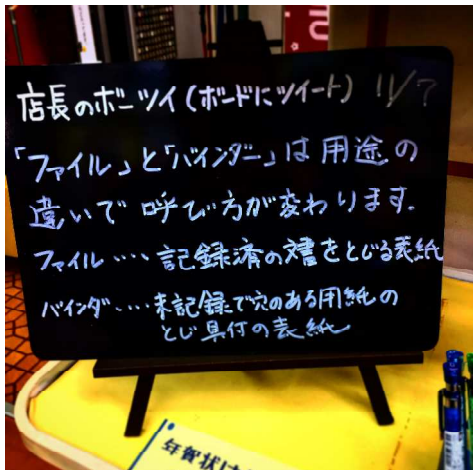 店長のボニツイ(ボードにツイート) 11/7
「ファイル」と「バインダー」は用途の
違いで呼び方が変わります.
ファイル‥‥記録済の文書をとじる表紙
バインダ‥‥未記録で穴のある用紙の
とじ具付の表紙
年賀状は